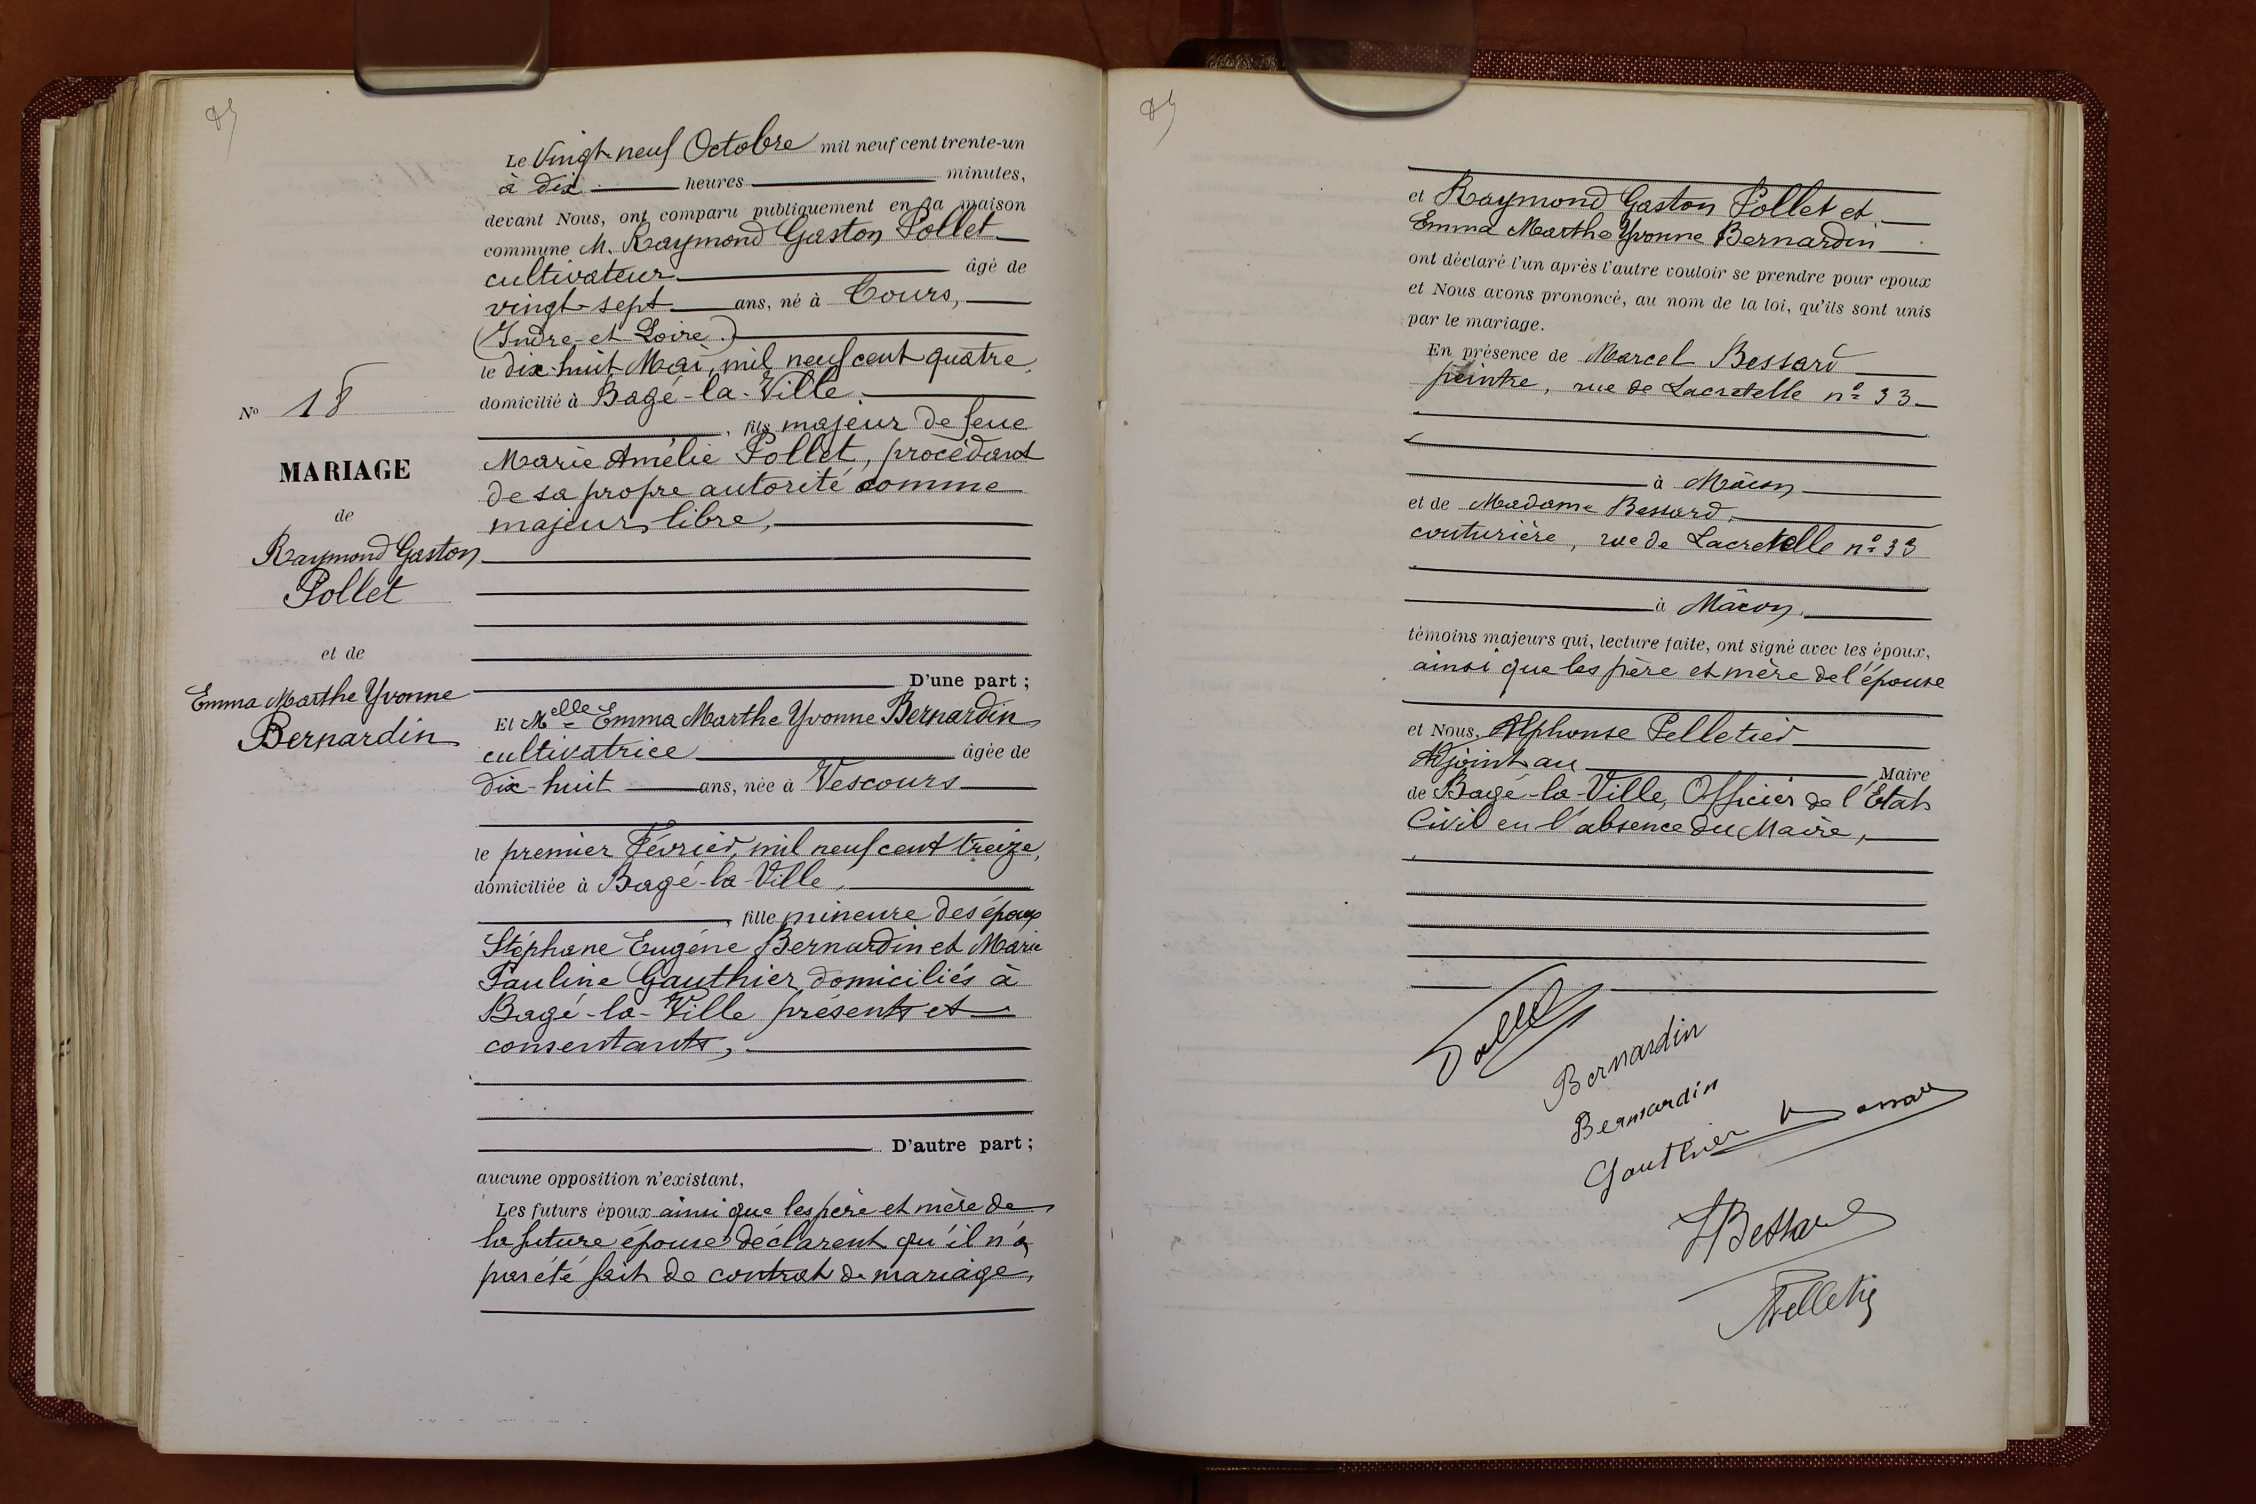 Le Vingt-neuf Octobre mil neuf cent trente-un
à dix heures minutes,
devant Nous, ont comparu publiquement en la maison
commune M. Raymond Gaston Pollet
cultivateur âgé de
vingt-sept ans, né à Tours,
(Indre-et-Loire)
le dix-huit Mai, mil neuf cent quatre,
domicilié à Bagé-la-Ville,
, fils majeur de feue
Marie Amélie Pollet, procédant
de sa propre autorité comme
majeur libre,
D'une part ;
Et Melle Emma Marthe Yvonne Bernardin
cultivatrice âgée de
dix-huit ans, née à Vescours
le premier Février, mil neuf cent treize,
domiciliée à Bagé-la-Ville,
, fille mineure des époux
Stéphane Eugène Bernardin et Marie
Pauline Gauthier domiciliés à
Bagé-la-Ville présents et
consentants,
D'autre part ;
aucune opposition n'existant,
Les futurs époux ainsi que les père et mère de
la future épouse déclarent qu'il n'a
pas été fait de contrat de mariage,
No 18
MARIAGE
de
Raymond Gaston
Pollet
et de
Emma Marthe Yvonne
Bernardin
et Raymond Gaston Pollet et
Emma Marthe Yvonne Bernardin
ont déclaré l'un après l'autre vouloir se prendre pour époux
et Nous avons prononcé, au nom de la loi, qu'ils sont unis
par le mariage.
En présence de Marcel Bessard
peintre, rue de Lacretelle no 33
à Mâcon
et de Madame Bessard,
couturière, rue de Lacretelle no 33
à Mâcon,
témoins majeurs qui, lecture faite, ont signé avec les époux,
ainsi que les père et mère de l'épouse
et Nous, Alphonse Pelletier
Adjoint au Maire
de Bagé-la-Ville, Officier de l'Etat
Civil en l'absence du Maire,
Pollet
Bernardin
Bernardin
Gauthier
Bessard
Pelletier